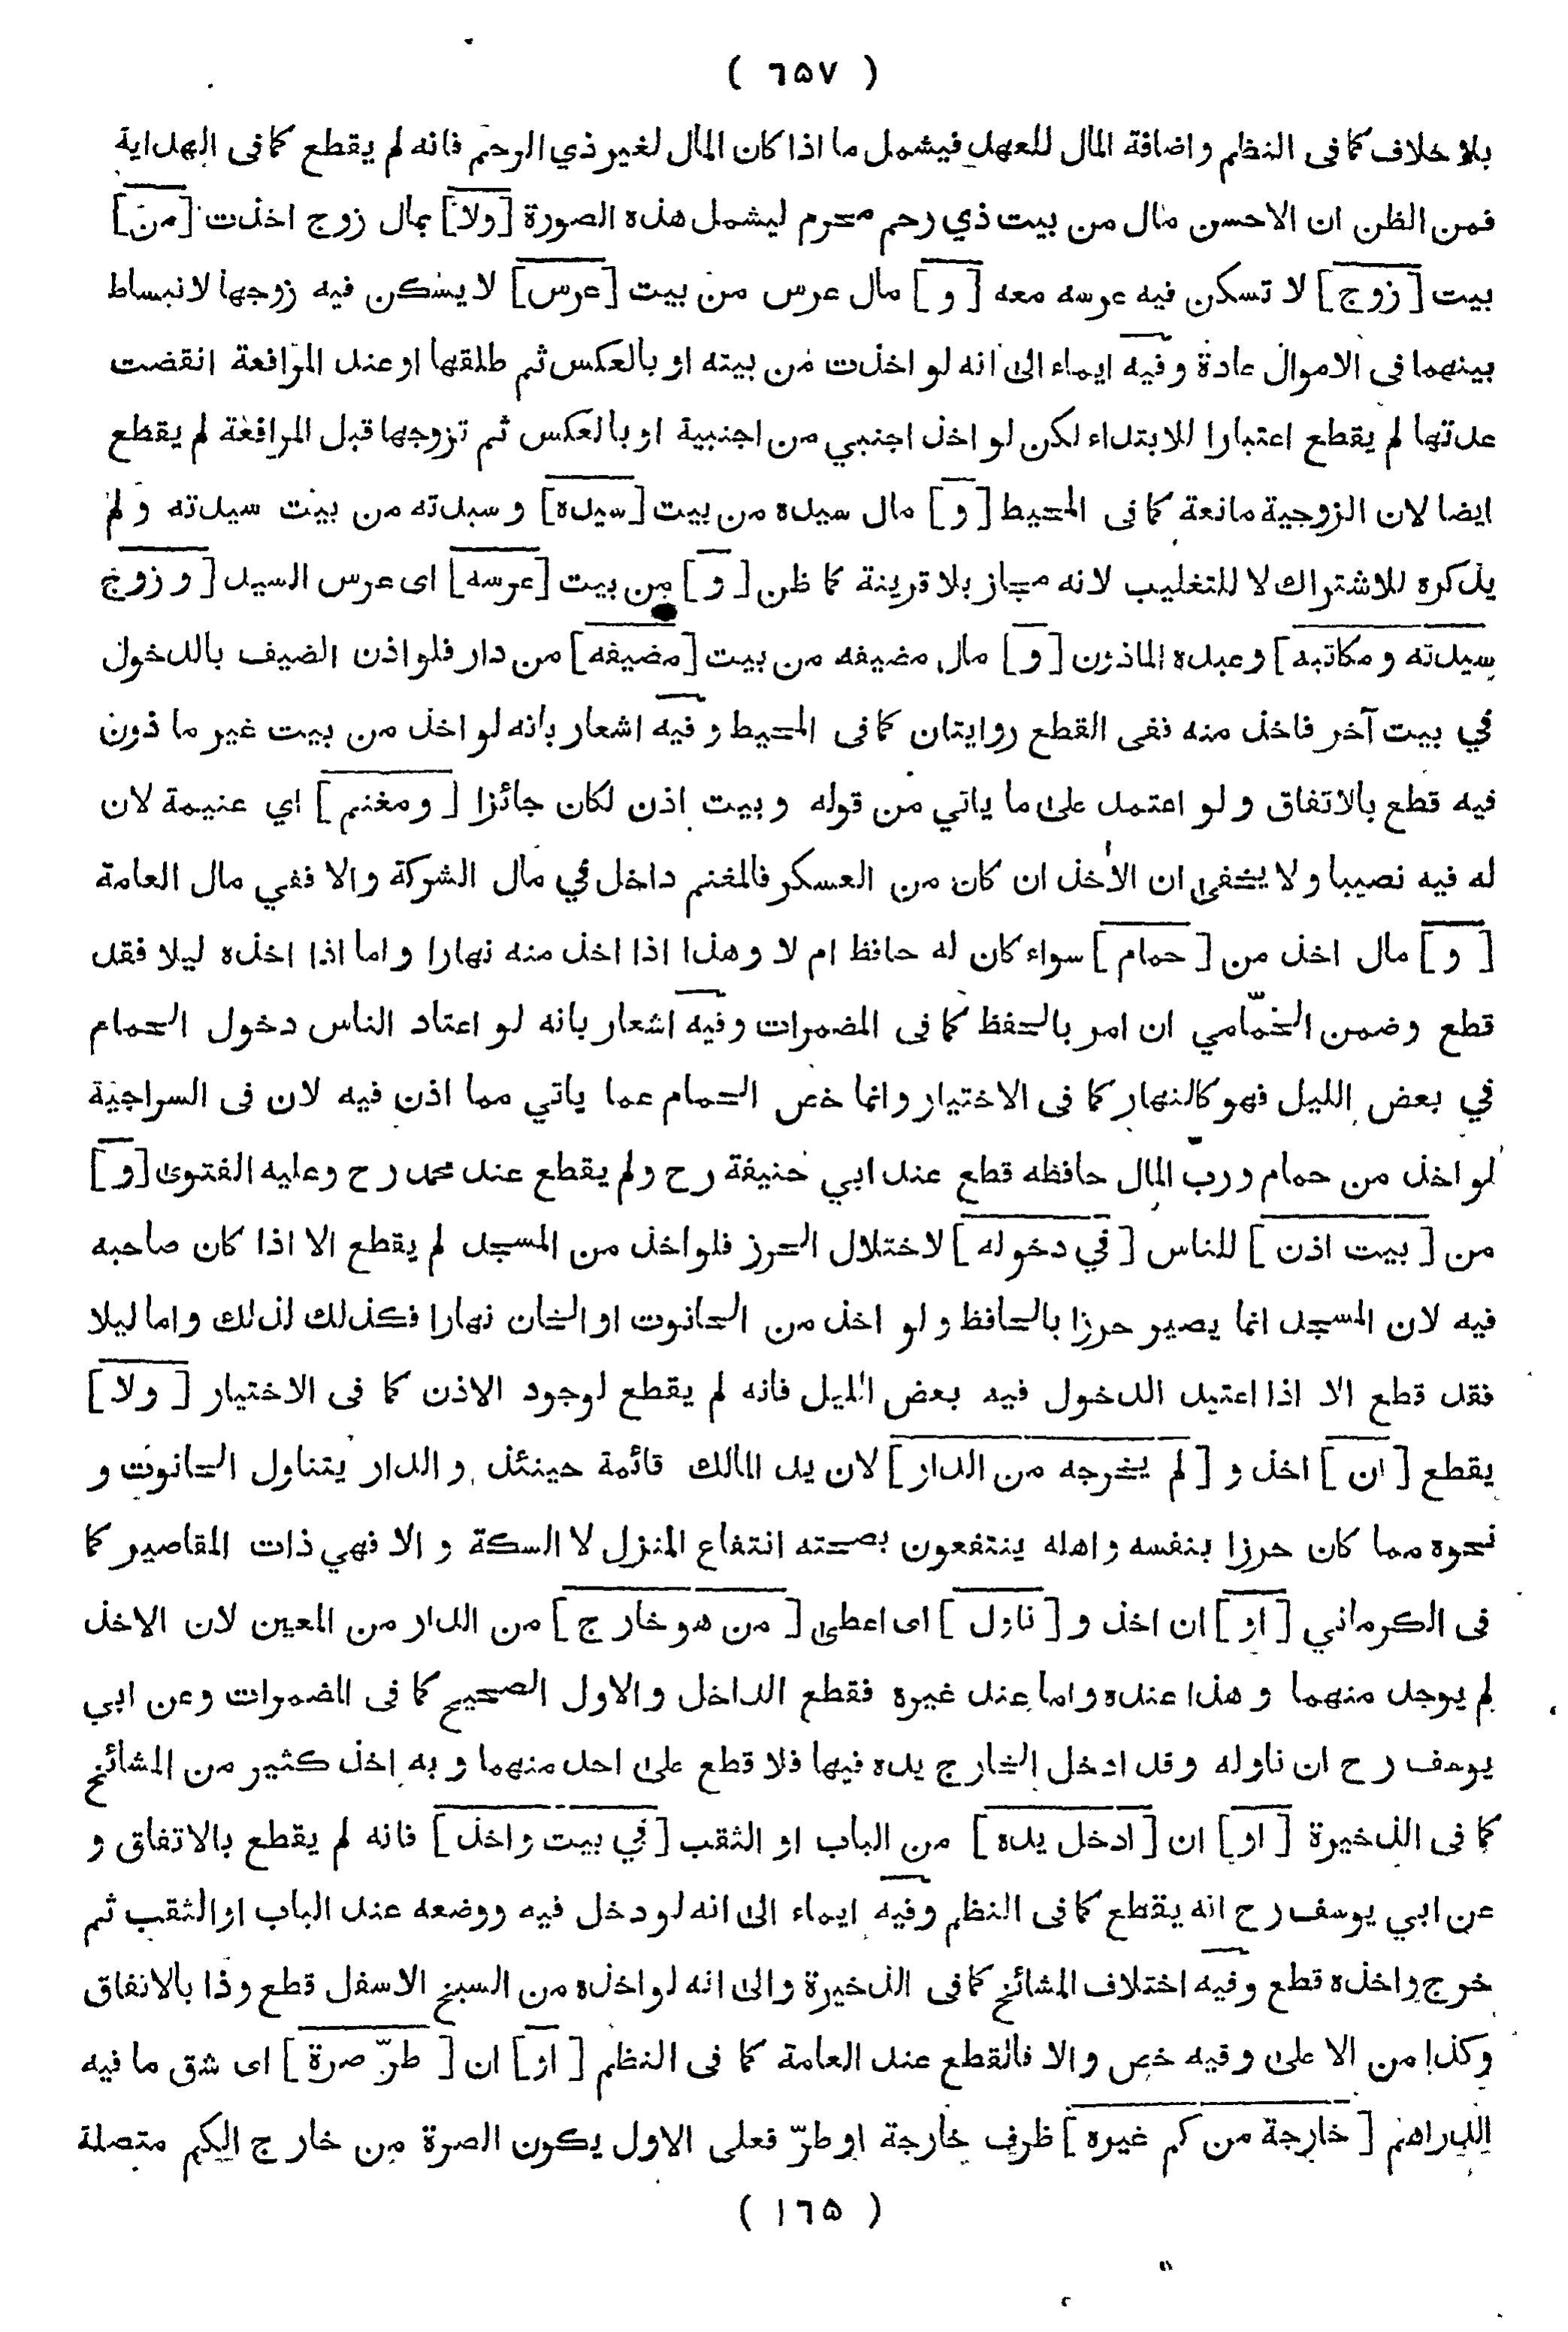 ( ٦٥٧ )
بلا خلاف كما فى النظم واضافة المال للعهد فيشمل ما اذا كان المال لغير ذي الرحم فانه لم يقطع كما فى الهداية
فمن الظن ان الاحسن مال من بيت ذي رحم محرم ليشمل هذه الصورة [ولا] بمال زوج اخذت [من]
بيت [زوج] لا تسكن فيه عرسه معه [و] مال عرس من بيت [عرس] لا يسكن فيه زوجها لانبساط
بينهما فى الاموال عادة وفيه ايماء الى انه لو اخذت من بيته او بالعكس ثم طلقها او عند المرافعة انقضت
عدتها لم يقطع اعتبارا للابتداء لكن لو اخذ اجنبي من اجنبية او بالعكس ثم تزوجها قبل المرافعة لم يقطع
ايضا لان الزوجية مانعة كما فى المحيط [و] مال سيده من بيت [سيده] وسيدته من بيت سيدته ولم
يذكره للاشتراك لا للتغليب لانه مجاز بلا قرينة كما ظن [و] من بيت [عرسه] اى عرس السيد [وزوج
سيدته ومكاتبه] وعبده الماذون [و] مال مضيفه من بيت [مضيفه] من دار فلو اذن الضيف بالدخول
في بيت آخر فاخذ منه ففى القطع روايتان كما فى المحيط وفيه اشعار بانه لو اخذ من بيت غير ماذون
فيه قطع بالاتفاق ولو اعتمد على ما ياتي من قوله وبيت اذن لكان جائزا [ومغنم] اي غنيمة لان
له فيه نصيبا ولا يخفى ان الاخذ ان كان من العسكر فالمغنم داخل في مال الشركة والا ففي مال العامة
[و] مال اخذ من [حمام] سواء كان له حافظ ام لا وهذا اذا اخذ منه نهارا واما اذا اخذه ليلا فقد
قطع وضمن الحمّامي ان امر بالحفظ كما فى المضمرات وفيه اشعار بانه لو اعتاد الناس دخول الحمام
في بعض الليل فهو كالنهار كما فى الاختيار وانما خص الحمام عما ياتي مما اذن فيه لان فى السراجية
لو اخذ من حمام وربّ المال حافظه قطع عند ابي حنيفة رح ولم يقطع عند محمد رح وعليه الفتوى [و]
من [بيت اذن] للناس [في دخوله] لاختلال الحرز فلو اخذ من المسجد لم يقطع الا اذا كان صاحبه
فيه لان المسجد انما يصير حرزا بالحافظ ولو اخذ من الحانوت او الخان نهارا فكذلك لذلك واما ليلا
فقد قطع الا اذا اعتيد الدخول فيه بعض الليل فانه لم يقطع لوجود الاذن كما فى الاختيار [ولا]
يقطع [ان] اخذ و [لم يخرجه من الدار] لان يد المالك قائمة حينئذ والدار يتناول الحانوت و
نحوه مما كان حرزا بنفسه واهله ينتفعون بصحته انتفاع المنزل لا السكة والا فهي ذات المقاصير كما
فى الكرماني [او] ان اخذ و [ناول] اى اعطى [من هو خارج] من الدار من المعين لان الاخذ
لم يوجد منهما وهذا عنده واما عند غيره فقطع الداخل والاول الصحيح كما فى المضمرات وعن ابي
يوسف رح ان ناوله وقد ادخل الخارج يده فيها فلا قطع على احد منهما وبه اخذ كثير من المشائخ
كما فى الذخيرة [او] ان [ادخل يده] من الباب او الثقب [في بيت واخذ] فانه لم يقطع بالاتفاق و
عن ابي يوسف رح انه يقطع كما فى النظم وفيه ايماء الى انه لو دخل فيه ووضعه عند الباب او الثقب ثم
خرج واخذه قطع وفيه اختلاف المشائخ كما فى الذخيرة والى انه لو اخذه من السبخ الاسفل قطع وذا بالاتفاق
وكذا من الاعلى وقيه خص والا فالقطع عند العامة كما فى النظم [او] ان [طرّ صرة] اى شق ما فيه
الدراهم [خارجة من كم غيره] ظرف خارجة او طرّ فعلى الاول يكون الصرة من خارج الكم متصلة
( ١٦٥ )